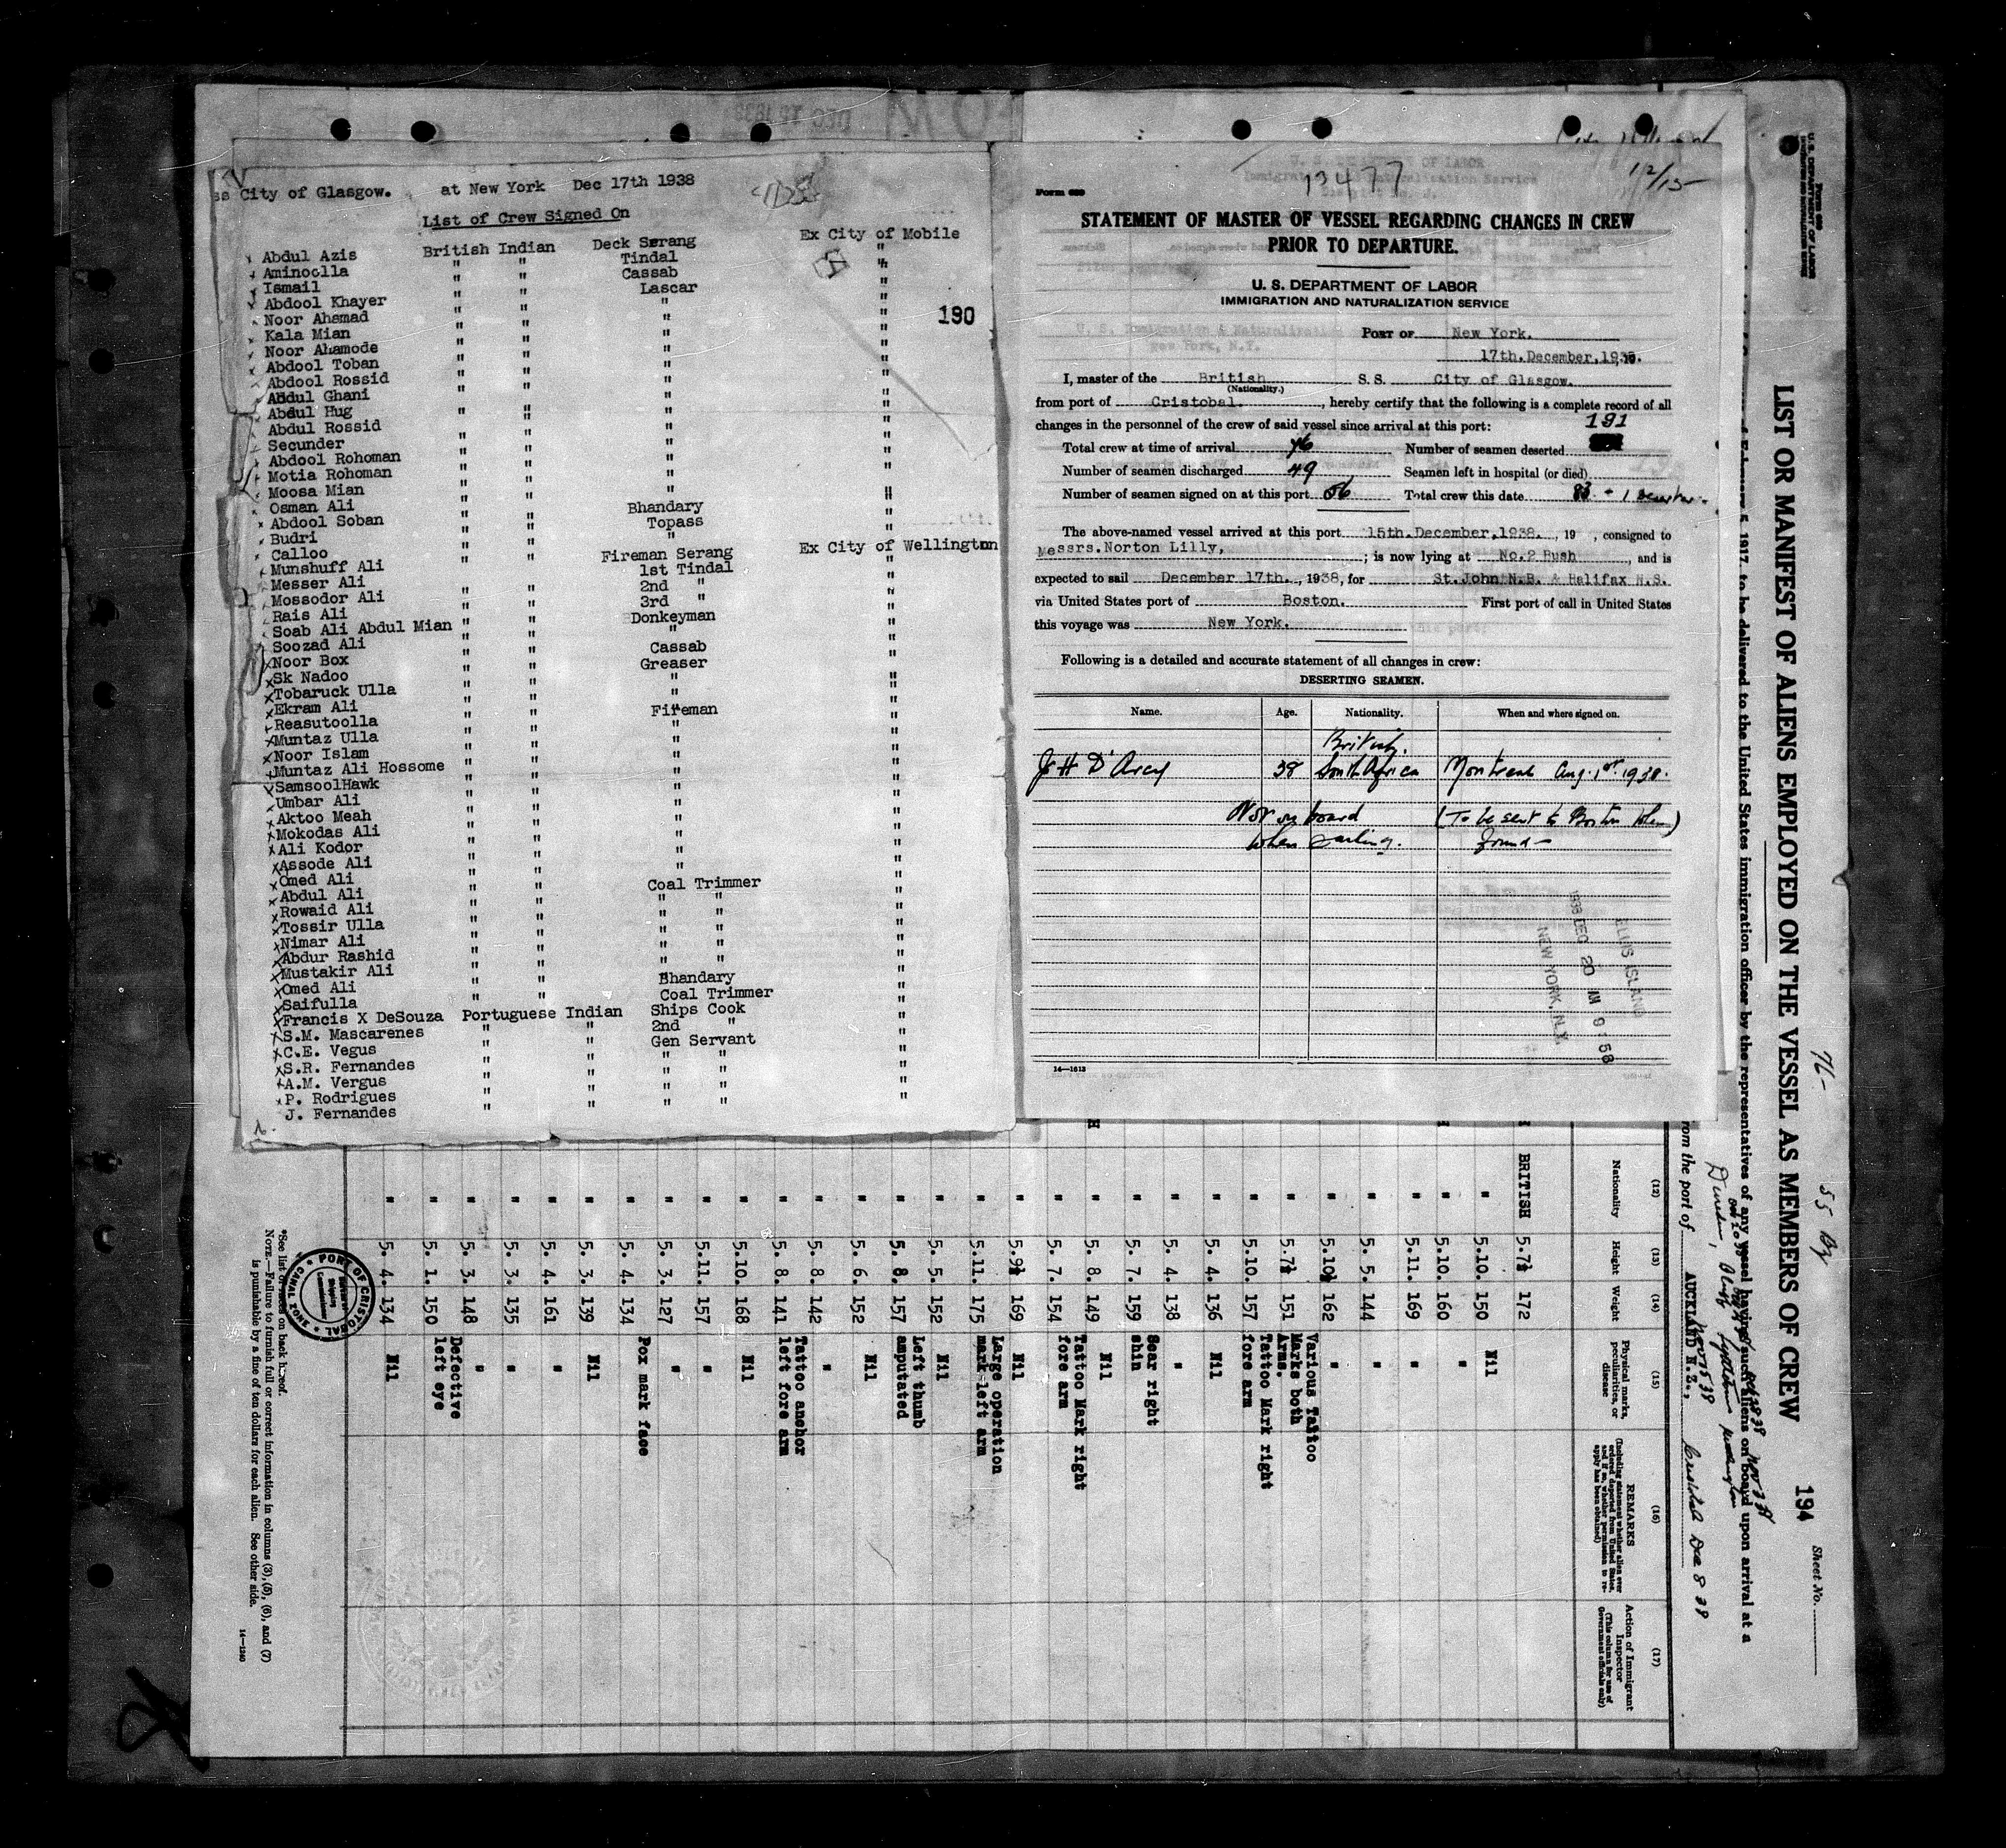 ss City of Glasgow. at New York Dec 17th 1938
List of Crew Signed On
Abdul Azis British Indian Deck Serang Ex City of Mobile
Aminoolla " " Tindal "
Ismail " " Cassab "
Abdool Khayer " " Lascar "
Noor Ahamad " " " "
Kala Mian " " " "
Noor Ahamode " " " "
Abdool Toban " " " "
Abdool Rossid " " " "
Abdul Ghani " " " "
Abdul Hug " " " "
Abdul Rossid " " " "
Secunder " " " "
Abdool Rohoman " " " "
Motia Rohoman " " " "
Moosa Mian " " " "
Osman Ali " " Bhandary "
Abdool Soban " " Topass "
Budri " " " "
Calloo " " Fireman Serang Ex City of Wellington
Munshuff Ali " " 1st Tindal "
Messer Ali " " 2nd " "
Mossodor Ali " " 3rd " "
Rais Ali " " Donkeyman "
Soab Ali Abdul Mian " " " "
Soozad Ali " " Cassab "
Noor Box " " Greaser "
Sk Nadoo " " " "
Tobaruck Ulla " " " "
Ekram Ali " " Fireman "
Reasutoolla " " " "
Muntaz Ulla " " " "
Noor Islam " " " "
Muntaz Ali Hossome " " " "
SamsoolHawk " " " "
Umbar Ali " " " "
Aktoo Meah " " " "
Mokodas Ali " " " "
Ali Kodor " " " "
Assode Ali " " " "
Omed Ali " " Coal Trimmer "
Abdul Ali " " " " "
Rowaid Ali " " " " "
Tossir Ulla " " " " "
Nimar Ali " " " " "
Abdur Rashid " " " " "
Mustakir Ali " " Bhandary "
Omed Ali " " Coal Trimmer "
Saifulla
Francis X DeSouza Portuguese Indian Ships Cook "
S.M. Mascarenes " " 2nd " "
C.E. Vegus " " Gen Servant "
S.R. Fernandes " " " " "
A.M. Vergus " " " " "
P. Rodrigues " " " " "
J. Fernandes " " " " "
190
13477
12/15
Form 689
STATEMENT OF MASTER OF VESSEL REGARDING CHANGES IN CREW
PRIOR TO DEPARTURE.
U. S. DEPARTMENT OF LABOR
IMMIGRATION AND NATURALIZATION SERVICE
PORT OF New York.
17th.December,1938.
I, master of the British S. S. City of Glasgow.
(Nationality.)
from port of Cristobal. , hereby certify that the following is a complete record of all
changes in the personnel of the crew of said vessel since arrival at this port:
191
Total crew at time of arrival 76 Number of seamen deserted
Number of seamen discharged 49 Seamen left in hospital (or died)
Number of seamen signed on at this port 56 Total crew this date 83 + 1 Deserter.
The above-named vessel arrived at this port 15th.December,1938. , 19 , consigned to
Messrs.Norton Lilly, ; is now lying at No.2 Bush , and is
expected to sail December 17th. , 1938, for St.John N.B. & Halifax N.S.
via United States port of Boston. First port of call in United States
this voyage was New York.
Following is a detailed and accurate statement of all changes in crew:
DESERTING SEAMEN.
Name. Age. Nationality. When and where signed on.
British.
J H D'Arcy 38 South Africa Montreal Aug. 1st 1938.
Not on board (To be sent to Boston when)
when sailing. found
ELLIS ISLAND
1938 DEC 20 AM 9 58
NEW YORK, N.Y.
14—1613
U. S. DEPARTMENT OF LABOR
194 Sheet No.
76- 55 By
LIST OR MANIFEST OF ALIENS EMPLOYED ON THE VESSEL AS MEMBERS OF CREW
5, 1917, to be delivered to the United States immigration officer by the representatives of any vessel having such aliens on board upon arrival at a
from the port of AUCKLAND N.Z., Cristobal Dec 8 38
(12) (13) (14) (15) (16) (17)
Nationality Height Weight Physical marks, peculiarities, or disease
REMARKS
(Including statement whether alien ever ordered deported from United States, and if so, whether permission to reapply has been obtained)
Action of Immigrant Inspector
(This column for use of Government officials only)
BRITISH 5.7½ 172
" 5.10. 150 Nil
" 5.10. 160 "
" 5.11. 169 "
" 5. 5. 144 "
" 5.10½ 162 "
" 5.7½ 151 Various Tattoo Marks both Arms.
" 5.10. 157 Tattoo Mark right fore arm
" 5. 4. 136 Nil
" 5. 4. 138 "
" 5. 7. 159 Scar right shin
" 5. 8. 149 Nil
" 5. 7. 154 Tattoo Mark right fore arm
" 5.9½ 169 Nil
" 5.11. 175 Large operation mark left arm
" 5. 5. 152 Nil
" 5. 8. 157 Left thumb amputated
" 5. 6. 152 Nil
" 5. 8. 142 "
" 5. 8. 141 Tattoo anchor left fore arm
" 5.10. 168 Nil
" 5.11. 157 "
" 5. 3. 127 "
" 5. 4. 134 Pox mark face
" 5. 3. 139 Nil
" 5. 4. 161 "
" 5. 3. 135 "
" 5. 3. 148 "
" 5. 1. 150 Defective left eye
" 5. 4. 134 Nil
PORT OF CRISTOBAL
CANAL ZONE
*See list of races on back hereof.
NOTE.—Failure to furnish full or correct information in columns (3), (5), (6), and (7)
is punishable by a fine of ten dollars for each alien. See other side.
14—1240